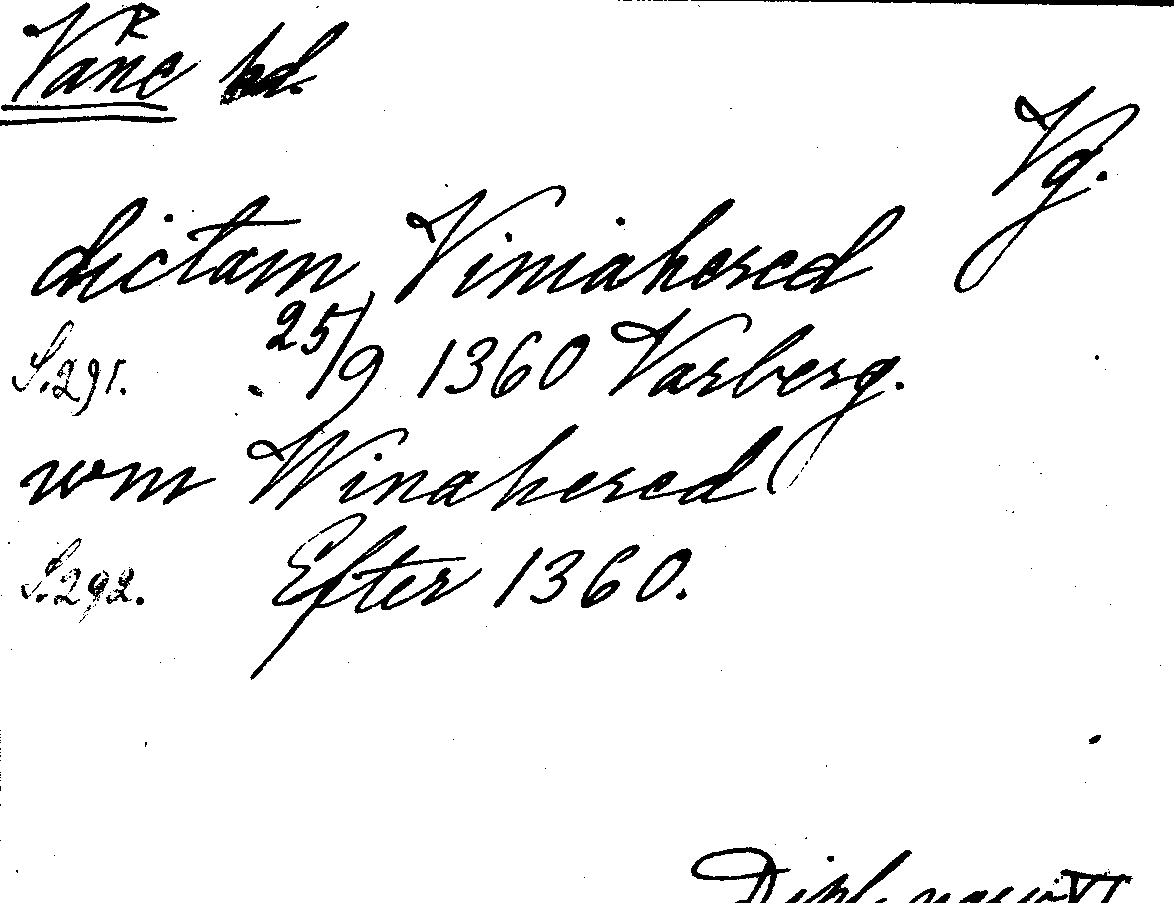 Vāne hd.
Vg.
dictam Viniahered
S.291. 25/9 1360 Varberg.
wm Winahered
S.292. Efter 1360.